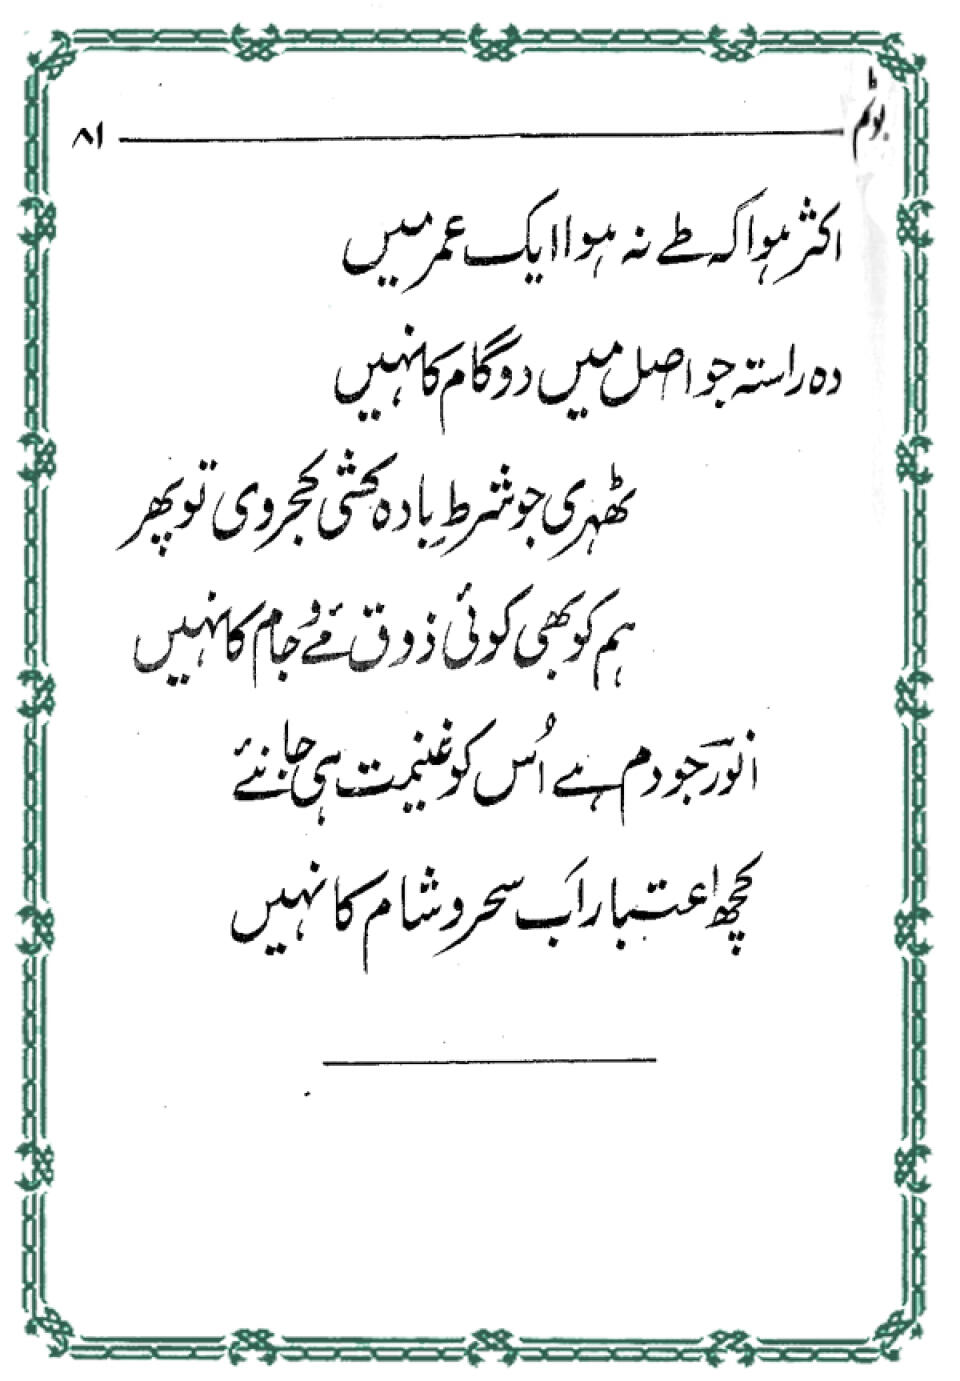 بوٹم ۸۱
اکثر ہوا کہ طے نہ ہوا ایک عمر میں
وہ راستہ جو اصل میں دو گام کا نہیں
ٹھہری جو شرطِ بادہ کشی کجروی تو پھر
ہم کو بھی کوئی ذوق مۓ و جام کا نہیں
انورؔ جو دم ہے اُس کو غنیمت ہی جانئے
کچھ اعتبار اَب سحر و شام کا نہیں